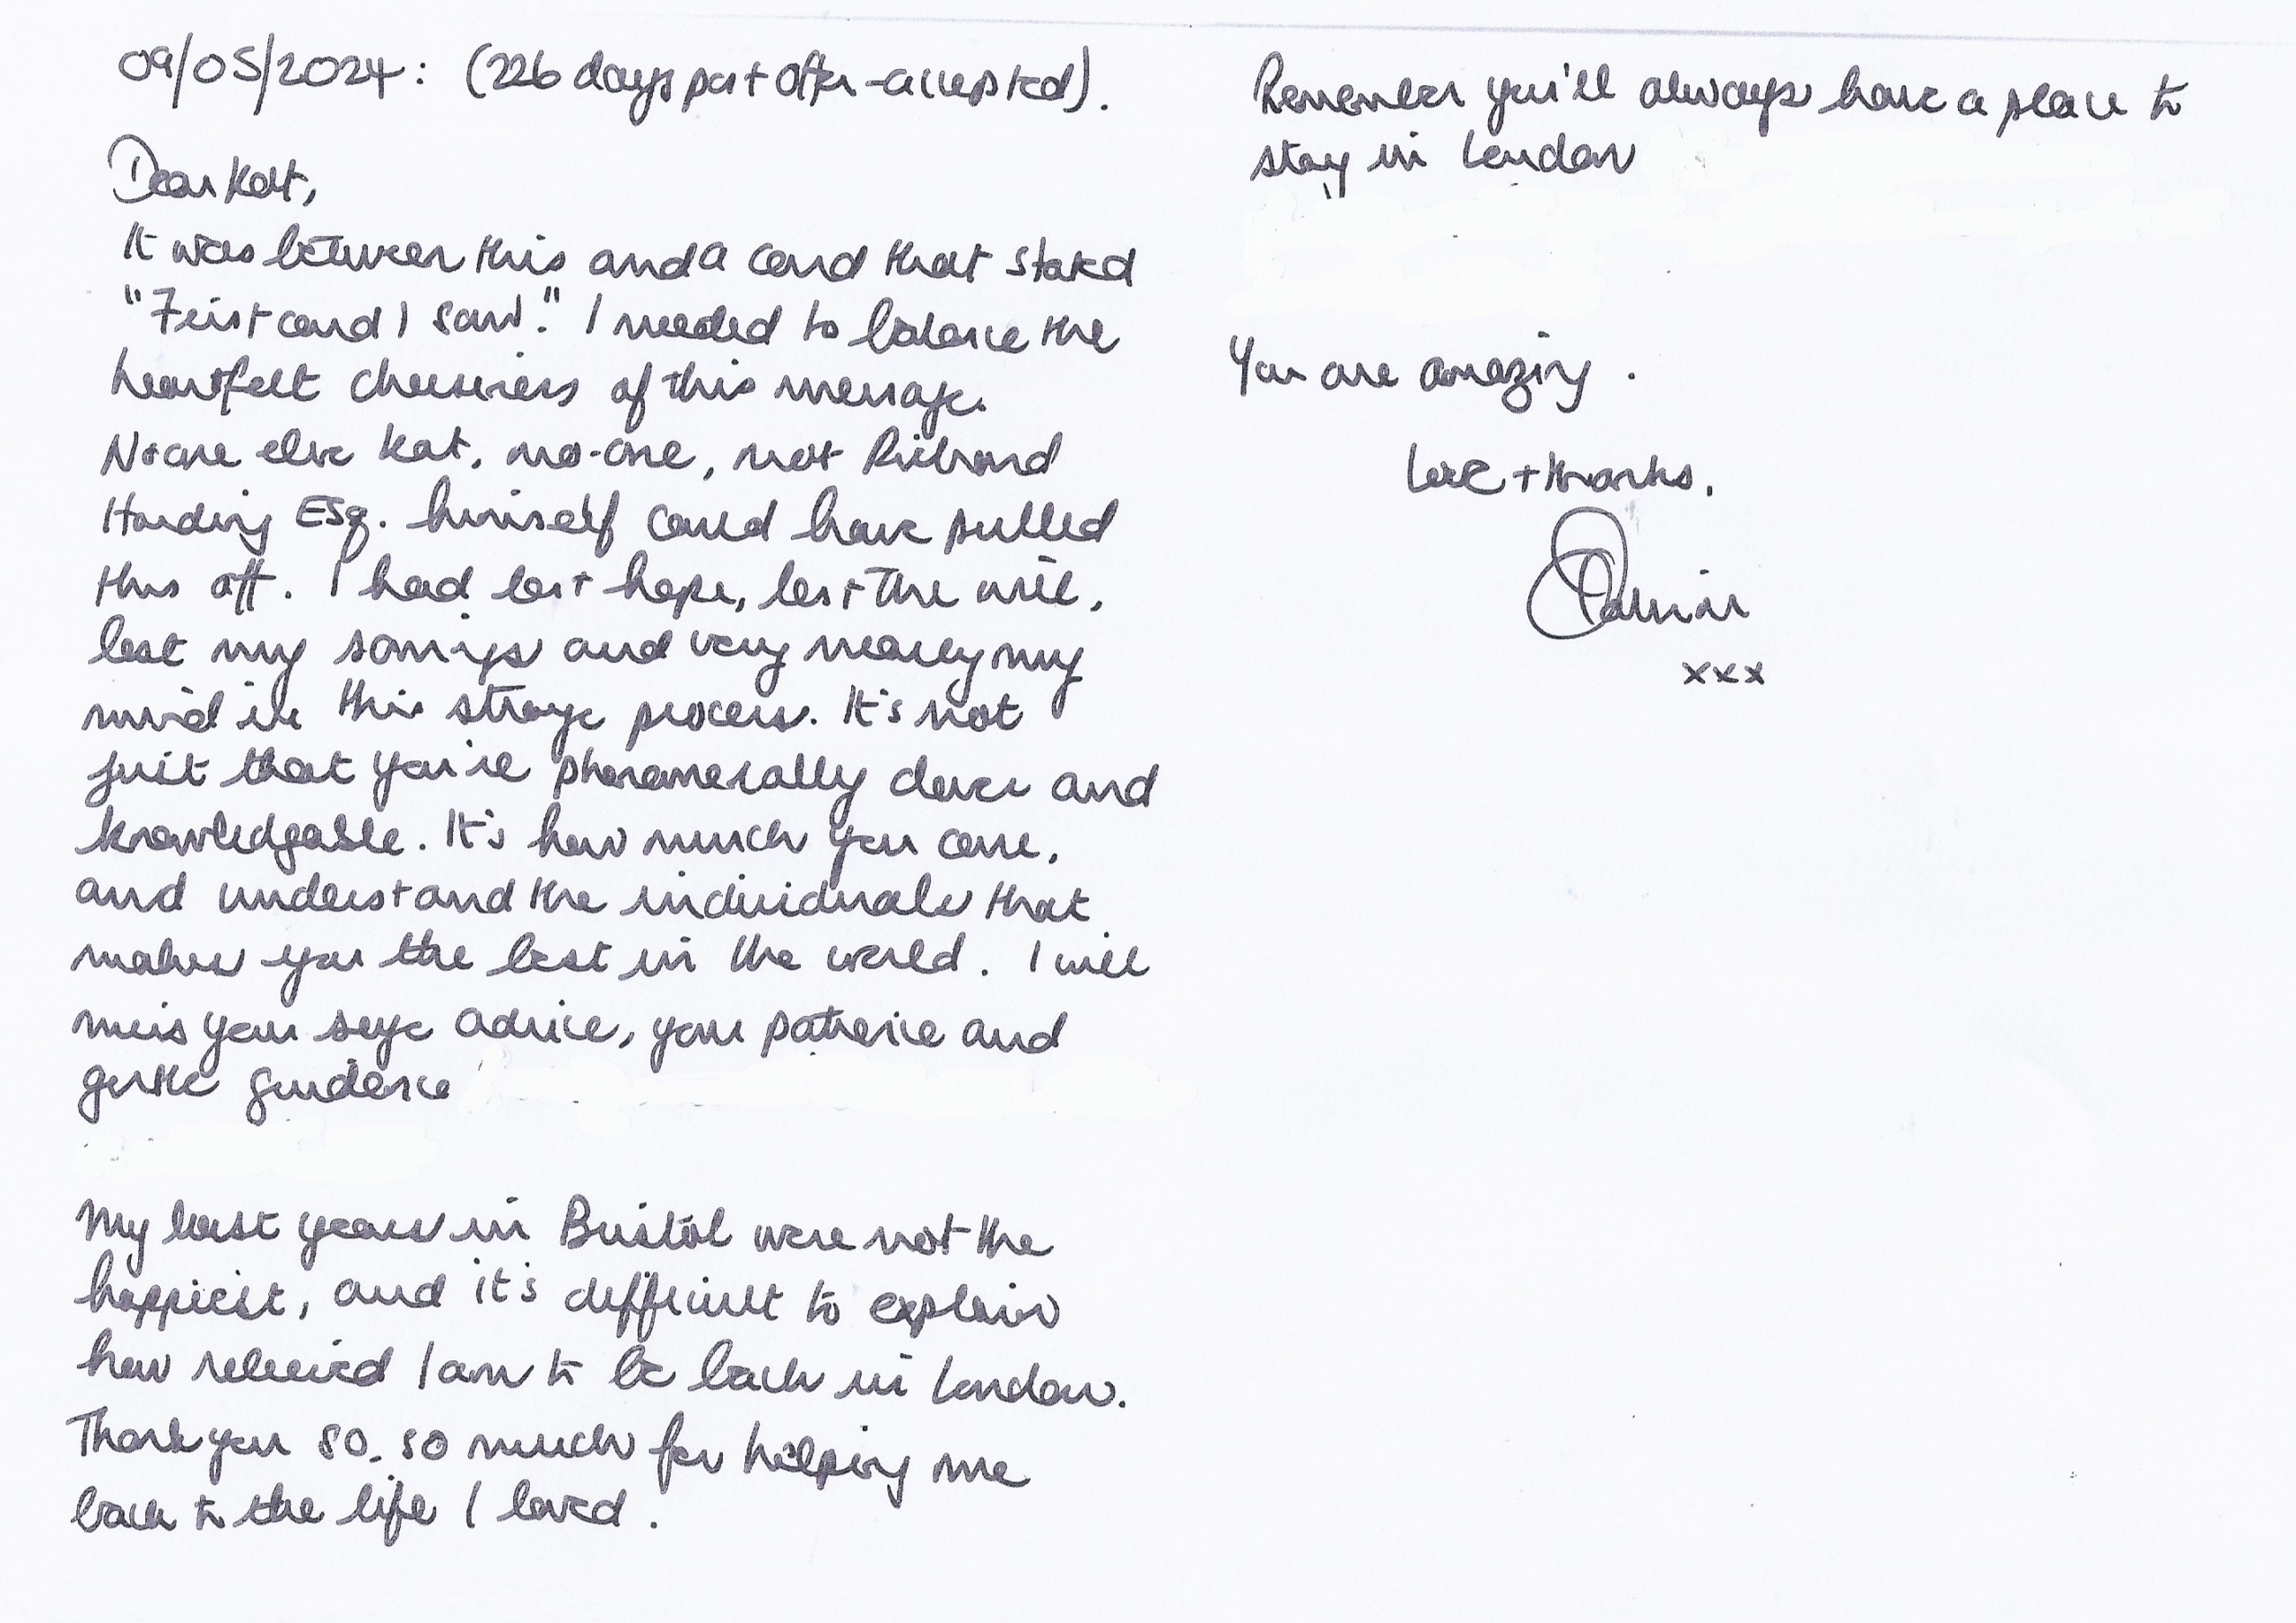 09/05/2024: (226 days post offer-accepted).
Dear Kat,
It was between this and a card that stated
"First card I saw." I needed to balance the
heartfelt cheesiness of this message.
No one else Kat, no-one, not Richard
Harding Esq. himself could have pulled
this off. I had lost hope, lost the will,
lost my savings and very nearly my
mind in this strange process. It's not
just that you're phenomenally clever and
knowledgable. It's how much you care,
and understand the individuals that
makes you the best in the world. I will
miss your sage advice, your patience and
gentle guidance
My last years in Bristol were not the
happiest, and it's difficult to explain
how relieved I am to be back in London.
Thank you so, so much for helping me
back to the life I loved.
Remember you'll always have a place to
stay in London
You are amazing.
Love + thanks,
xxx